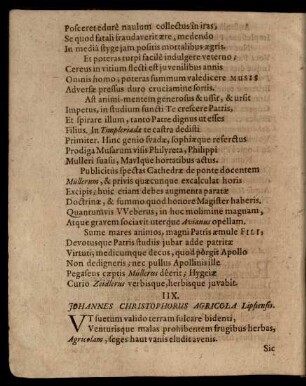 Posceret edurè naulum collectus in iras,
Se quod fatali fraudaverit ære, medendo
In mediâ stygejam positis mortalibus ægris.
Et poteras turpi facilè indulgere veterno,
Cereus in vitium flecti est juvenilibus annis
Omnis homo; poteras summum valedicere MUSIS
Adversæ pressus duro cruciamine sortis.
Ast animi-mentem generosus & ussit, & ursit
Impetus, in studium functi Te crescere Patris,
Et spirare illum, tanto Patre dignus ut esses
Filius. In Timpleriada te castra dedisti
Primiter. Hinc genio fradæ, sophiæque resertus
Prodiga Musarum visis Philyreta, Philippi
Mulleri suasu, MavIque hortatibus actus.
Publicitus spectas Cathedræ de ponte docentem
Mullerum, & privis quæcunque excalculat horis
Excipis; huic etiam debes augmenta paratæ
Doctrinæ, & summo quod honore Magister haberis.
Quantumvis VVeberus, in hoc molimine magnam,
Atque gravem sociavit uterque Avianus opellam.
Sume mares animos, magni Patris æmule FILI,
Devotusque Patris studiis jubar adde patritæ
Virtuti; medicumque decus, quod pôrgit Apollo
Non dedigneris; nec pullus Apollinis ille
Pegaseus cæptis Mulleru deerit; Hygeiæ
Curio Zeidlerus verbisque, herbisque juvabit.
IIX.
JOHANNES CHRISTOPHORUS AGRICOLA Lipsiensis.
UT suetum valido terram sulcare bidenti,
Venturisque malas prohibentem frugibus herbas,
Agricolam, seges haut vanis eludit avenis.
Sic